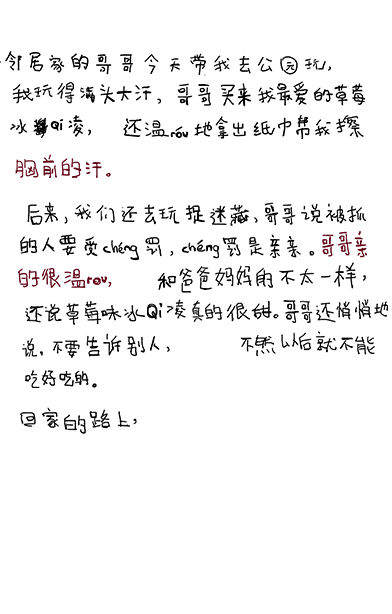 邻居家的哥哥今天带我去公园玩，
我玩得满头大汗，哥哥买来我最爱的草莓
冰Qi凌，还温róu地拿出纸巾帮我擦
胸前的汗。
后来，我们还去玩捉迷藏，哥哥说被抓
的人要受chéng罚，chéng罚是亲亲。哥哥亲
的很温rou，和爸爸妈妈的不太一样，
还说草莓味冰Qi凌真的很甜。哥哥还悄悄地
说，不要告诉别人，不然以后就不能
吃好吃的。
回家的路上，